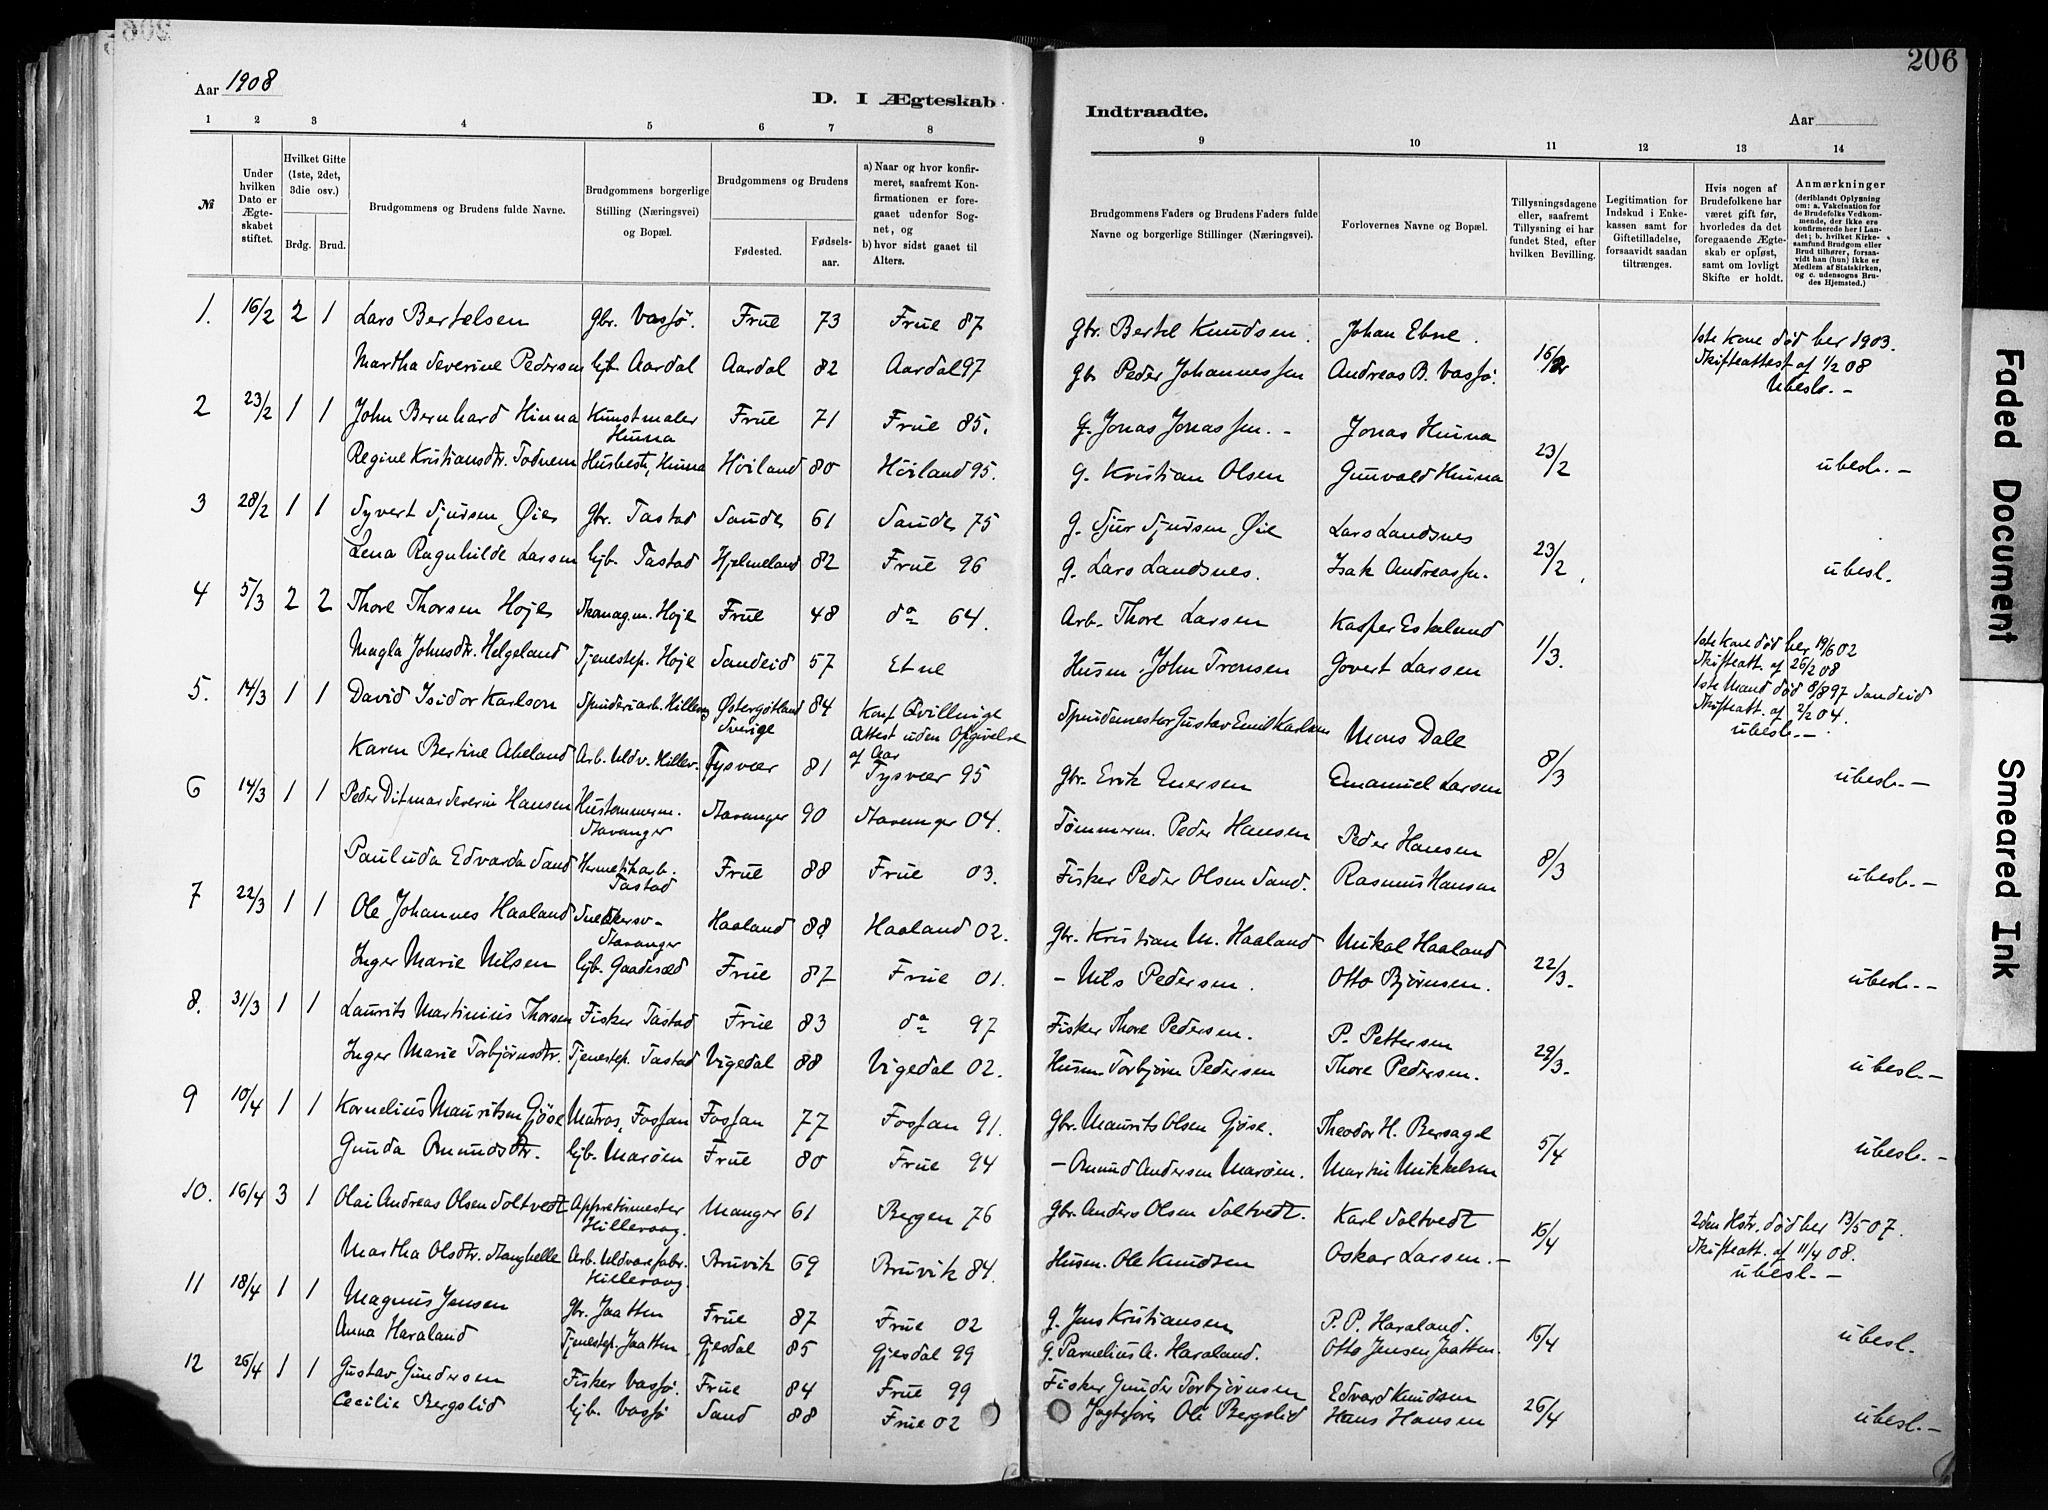 206
Aar 1908
D. I Ægteskab
Indtraadte.
Aar
1 2 3 4 5 6 7 8
9 10 11 12 13 14
№
Under hvilken Dato er Ægteskabet stiftet.
Hvilket Gifte (1ste, 2det, 3die osv.)
Brdg. Brud.
Brudgommens og Brudens fulde Navne.
Brudgommens borgerlige Stilling (Næringsvei) og Bopæl.
Brudgommens og Brudens
Fødested.
Fødselsaar.
a) Naar og hvor konfirmeret, saafremt Konfirmationen er foregaaet udenfor Sognet, og
b) hvor sidst gaaet til Alters.
Brudgommens Faders og Brudens Faders fulde Navne og borgerlige Stillinger (Næringsvei).
Forlovernes Navne og Bopæl.
Tillysningsdagene eller, saafremt Tillysning ei har fundet Sted, efter hvilken Bevilling.
Legitimation for Indskud i Enkekassen samt for Giftetilladelse, forsaavidt saadan tiltrænges.
Hvis nogen af Brudefolkene har været gift før, hvorledes da det foregaaende Ægteskab er opløst, samt om lovligt Skifte er holdt.
Anmærkninger (deriblandt Oplysning om: a. Vakcination for de Brudefolks Vedkommende, der ikke ere konfirmerede her i Landet; b. hvilket Kirkesamfund Brudgom eller Brud tilhører, forsaavidt han (hun) ikke er Medlem af Statskirken, og c. udensogns Brudes Hjemsted.)
1. 16/2 2 1 Lars Bertelsen gbr. Vassø. Frue 73 Frue 87 gbr. Bertel Knudsen. Johan Ebne. 1ste Kone død her 1903.
Martha Severine Pedersen hjb. Aardal Aardal 82 Aardal 97 gb. Peder Johannessen Andreas B. Vassø. 16/2 Skifteattest af 1/2 08
Ubesl. -
2 23/2 1 1 John Bernhard Hinna Kunstmaler Hinna Frue 71 Frue 85. g. Jonas Jonassen. - Jonas Hinna
Regine Kristiansdtr. Todnem Husbest., Hinna Höiland 80 Höiland 95. g. Kristian Olsen Gunvald Hinna 23/2 ubesl. -
3 28/2 1 1 Syvert Sjursen Øie gbr. Tastad Saude 61 Saude 75 g. Sjur Sjursen Øie Lars Landsnes
Lena Ragnhilde Larsen hjb. Tastad Hjelmeland 82 Frue 96 g. Lars Landsnes. Isak Andreassen. 23/2 ubesl.
4 5/3 2 2 Thore Thorsen Hoje Skomag.m. Hoje Frue 48 do 64. Arb. Thore Larsen Kasper Eskelund 1ste Kone død her 19/6 02
Magla Johnsdtr. Helgeland Tjenestep. Hoje Sandeid 57 Etne Husm. John Tronsen Govert Larsen 1/3. Skifteatt. af 26/2 08
1ste Mand død 8/8 97 Sandeid
Skifteatt. af 2/2 04.
ubesl. -
5. 14/3 1 1 David Isidor Karlson Spinderiarb. Hillevaag Østergötland Sverige 84 Konf. Qvillinge Attest uden Opgivelse af Aar Spindemester Gustav Emil Karlson Mons Dale
Karen Bertine Aheland Arb. Uldv. Hillev. Tysvær 81 Tysvær 95 gbr. Erik Enersen Emanuel Larsen 8/3 ubesl. -
6 14/3 1 1 Peder Ditmar Severin Hansen Hustømmerm. Stavanger Stavanger 90 Stavanger 04. Tømmerm. Peder Hansen Peder Hansen
Pauluda Edvarda Sand Hermetikarb. Tastad Frue 88 Frue 03. Fisker Peder Olsen Sand. Rasmus Hansen 8/3 ubesl. -
7 22/3 1 1 Ole Johannes Haaland Snedkersv- Stavanger Haaland 88 Haaland 02. gbr. Kristian M. Haaland Mikal Haaland
Inger Marie Nilsen hjb. Gaadesæd Frue 87 Frue 01. - Nils Pedersen. Otto Bjørnsen. 22/3. ubesl. -
8. 31/3 1 1 Laurits Martinius Thorsen Fisker Tastad Frue 83 do 97 Fisker Thore Pedersen. P. Pettersen
Inger Marie Torbjørnsdtr. Tjenestep. Tastad Vigedal 88 Vigedal 02. Husm. Torbjørn Pedersen Thore Pedersen. 29/3. ubesl. -
9 10/4 1 1 Kornelius Mauritsen Gjöse Matros, Fossan Fossan 77 Fossan 91. gbr. Maurits Olsen Gjöse. Theodor H. Bersagel
Gunda Omundsdtr. hjb. Marøen Frue 80 Frue 94 - Omund Andersen Marøen. Martin Mikkelsen 5/4 ubesl. -
10. 16/4 3 1 Olai Andreas Olsen Soltvedt Appreturmester Hillevaag. Manger 61 Bergen 76 gbr. Anders Olsen Soltvedt. Karl Soltvedt 2den Hstr. død her 13/5 07.
Martha Olsdtr. Stanghelle Arb. Uldvarefabr. Hillevaag Bruvik 69 Bruvik 84. Husm. Ole Knudsen Oskar Larsen. - 16/4 Skifteatt. af 11/4 08.
ubesl. -
11 18/4 1 1 Magnus Jensen gbr. Jaatten Frue 87 Frue 02 g. Jens Kristiansen P. P. Haraland.
Anna Haraland Tjenestep. Jaatten Gjesdal 85 Gjesdal 99 g. Parnelius A. Haraland. Otto Jensen Jaatten. 16/4 ubesl.
12 26/4 1 1 Gustav Gundersen Fisker Vassø. Frue 84 Frue 99 Fisker Gunder Torbjørnsen Edvard Knudsen
Cecilie Bergslid hjb. Vassø Sand 88 Frue 02 Jagtsfører Ole Bergslid Hans Hansen 26/4 ubesl. -
Faded Document
Smeared Ink